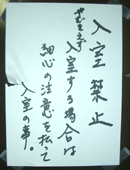 入室禁止
やむをえず
入室する場合は
細心の注意を払って
入室の事。